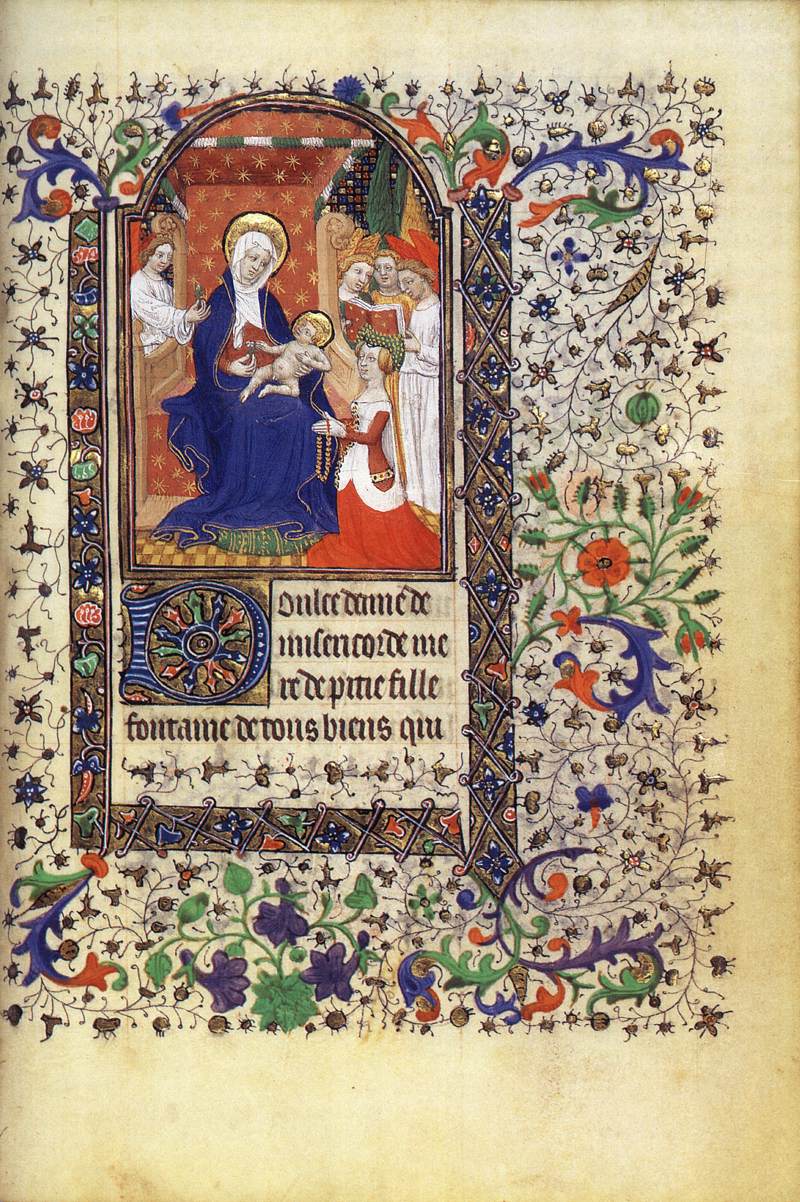 Doulce dame de
misericorde me
re de pitie fille
fontaine de tous biens qui